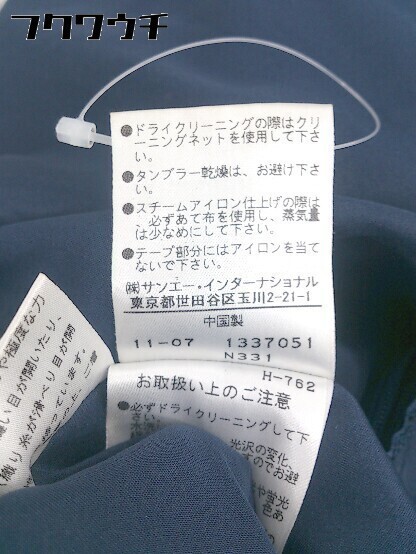 フクワウチ
●ドライクリーニングの際はクリ
ーニングネットを使用して下さ
い。
●タンブラー乾燥は、お避け下さ
い。
●スチームアイロン仕上げの際は
、必ずあて布を使用し、蒸気量
は少なめにして下さい。
●テープ部分にはアイロンを当て
ないで下さい。
㈱サンエー・インターナショナル
東京都世田谷区玉川2-21-1
中国製
11-07 1337051
N331
H-762
お取扱い上のご注意
●必ずドライクリーニングして下
さい
光沢の変化、
のでお避
や蛍光
色あ
や極度な力
い目が開いたり、
り糸が滑べり目が開
ています。